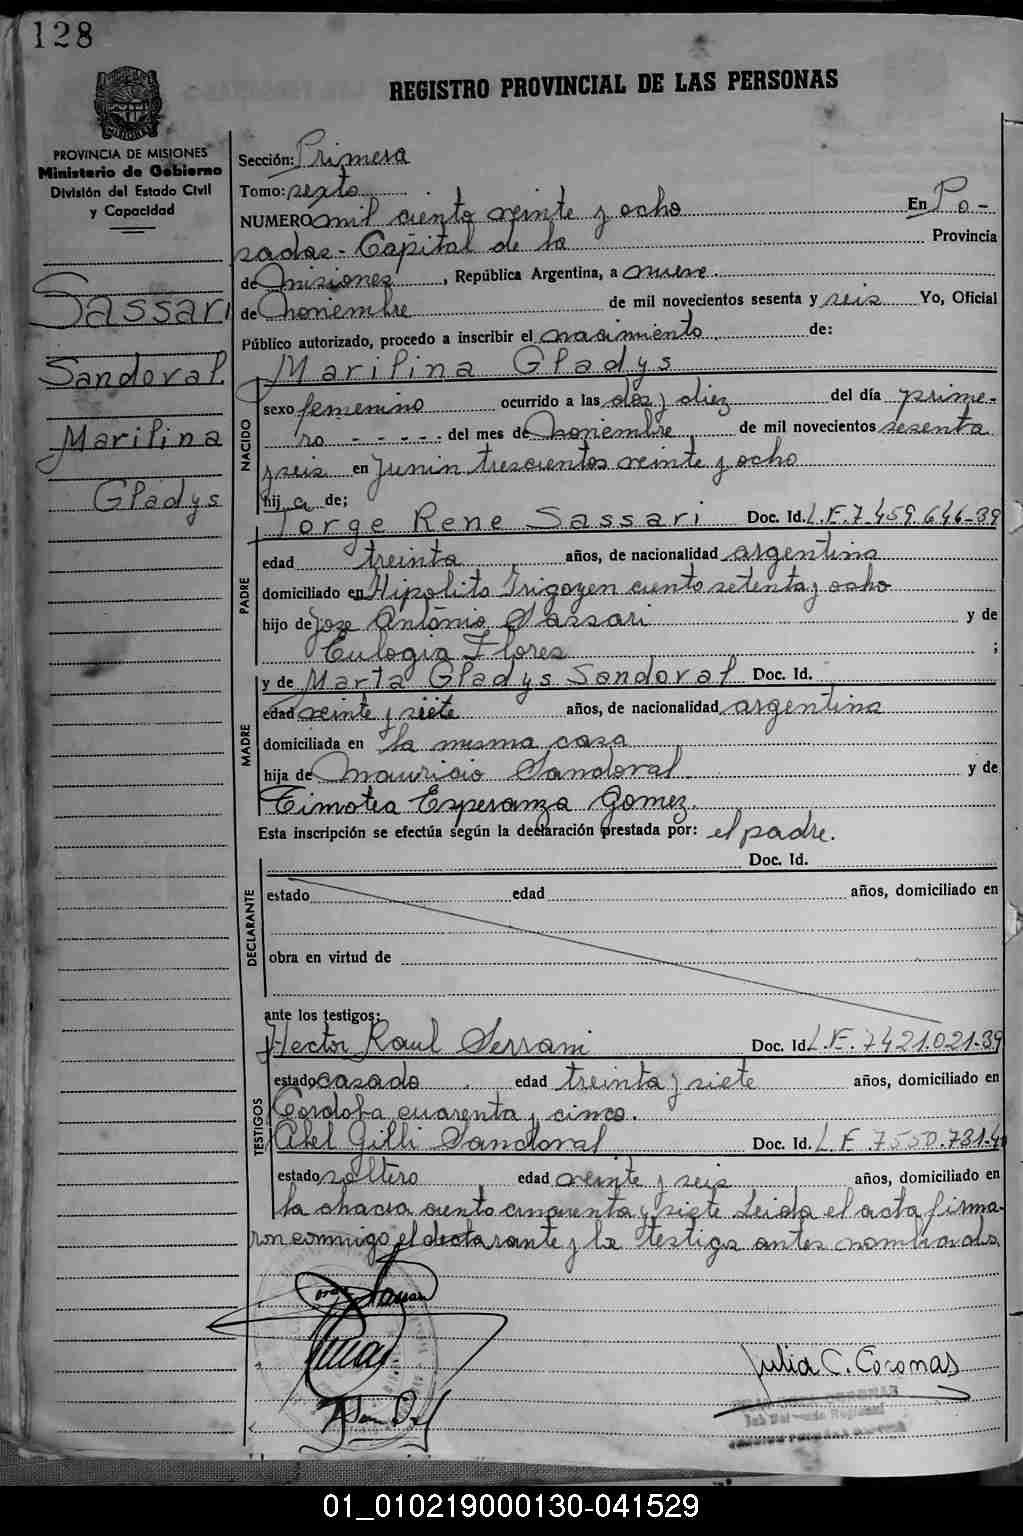 128
REGISTRO PROVINCIAL DE LAS PERSONAS
PROVINCIA DE MISIONES
Ministerio de Gobierno
División del Estado Civil
y Capacidad
Sassari
Sandoval
Marilina
Gladys
Sección: Primera
Tomo: sexto
NUMERO mil ciento veinte y ocho En Po-
sadas - Capital de la Provincia
de Misiones, República Argentina, a nueve
de Noviembre de mil novecientos sesenta y seis Yo, Oficial
Público autorizado, procedo a inscribir el nacimiento de:
Marilina Gladys
NACIDO
sexo femenino ocurrido a las dos y diez del día prime-
ro - - - - - del mes de Noviembre de mil novecientos sesenta
y seis en Junin trescientos veinte y ocho
hij a de;
Jorge Rene Sassari Doc. Id. L.E. 7.459.646-39
PADRE
edad treinta años, de nacionalidad argentina
domiciliado en Hipolito Irigoyen ciento setenta y ocho
hijo de Jose Antonio Sassari y de
Eulogia Flores ;
y de Marta Gladys Sandoval Doc. Id.
MADRE
edad veinte y siete años, de nacionalidad argentina
domiciliada en la misma casa
hija de Mauricio Sandoval y de
Timotea Esperanza Gomez.
Esta inscripción se efectúa según la declaración prestada por: el padre.
Doc. Id.
DECLARANTE
estado edad años, domiciliado en
obra en virtud de
ante los testigos:
Hector Raul Serrani Doc. Id. L.E. 7421.021-39
TESTIGOS
estado casado edad treinta y siete años, domiciliado en
Cordoba cuarenta y cinco.
Abel Gilli Sandoval Doc. Id. L.E. 7550.731-4
estado soltero edad veinte y seis años, domiciliado en
la chacra ciento cincuenta y siete Leida el acta firma-
ron conmigo el declarante y los testigos antes nombrados
Julia C. Coronas
01_010219000130-041529